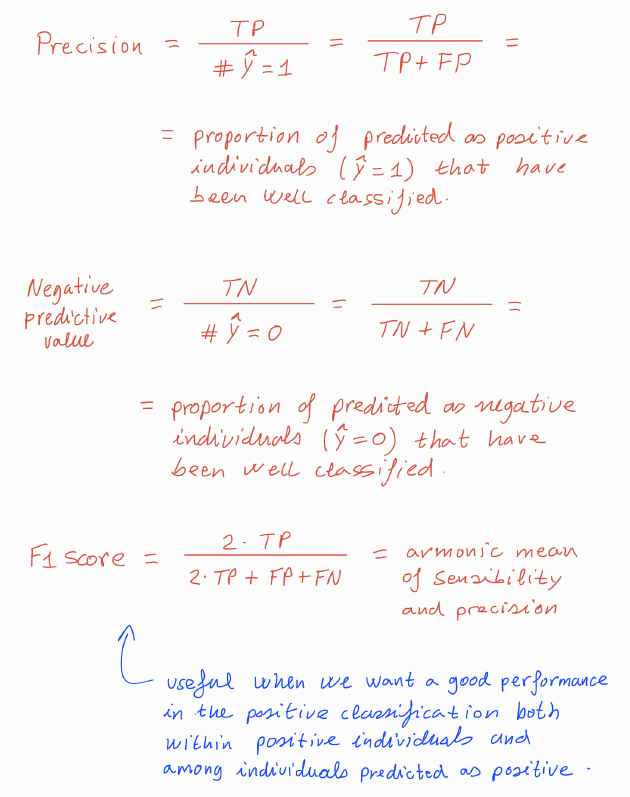 Precision = TP / # ŷ = 1 = TP / TP + FP =
= proportion of predicted as positive
individuals (ŷ = 1) that have
been well classified.
Negative predictive value = TN / # ŷ = 0 = TN / TN + FN =
= proportion of predicted as negative
individuals (ŷ = 0) that have
been well classified.
F1 score = 2 · TP / 2 · TP + FP + FN = armonic mean
of sensibility
and precision
useful when we want a good performance
in the positive classification both
within positive individuals and
among individuals predicted as positive.